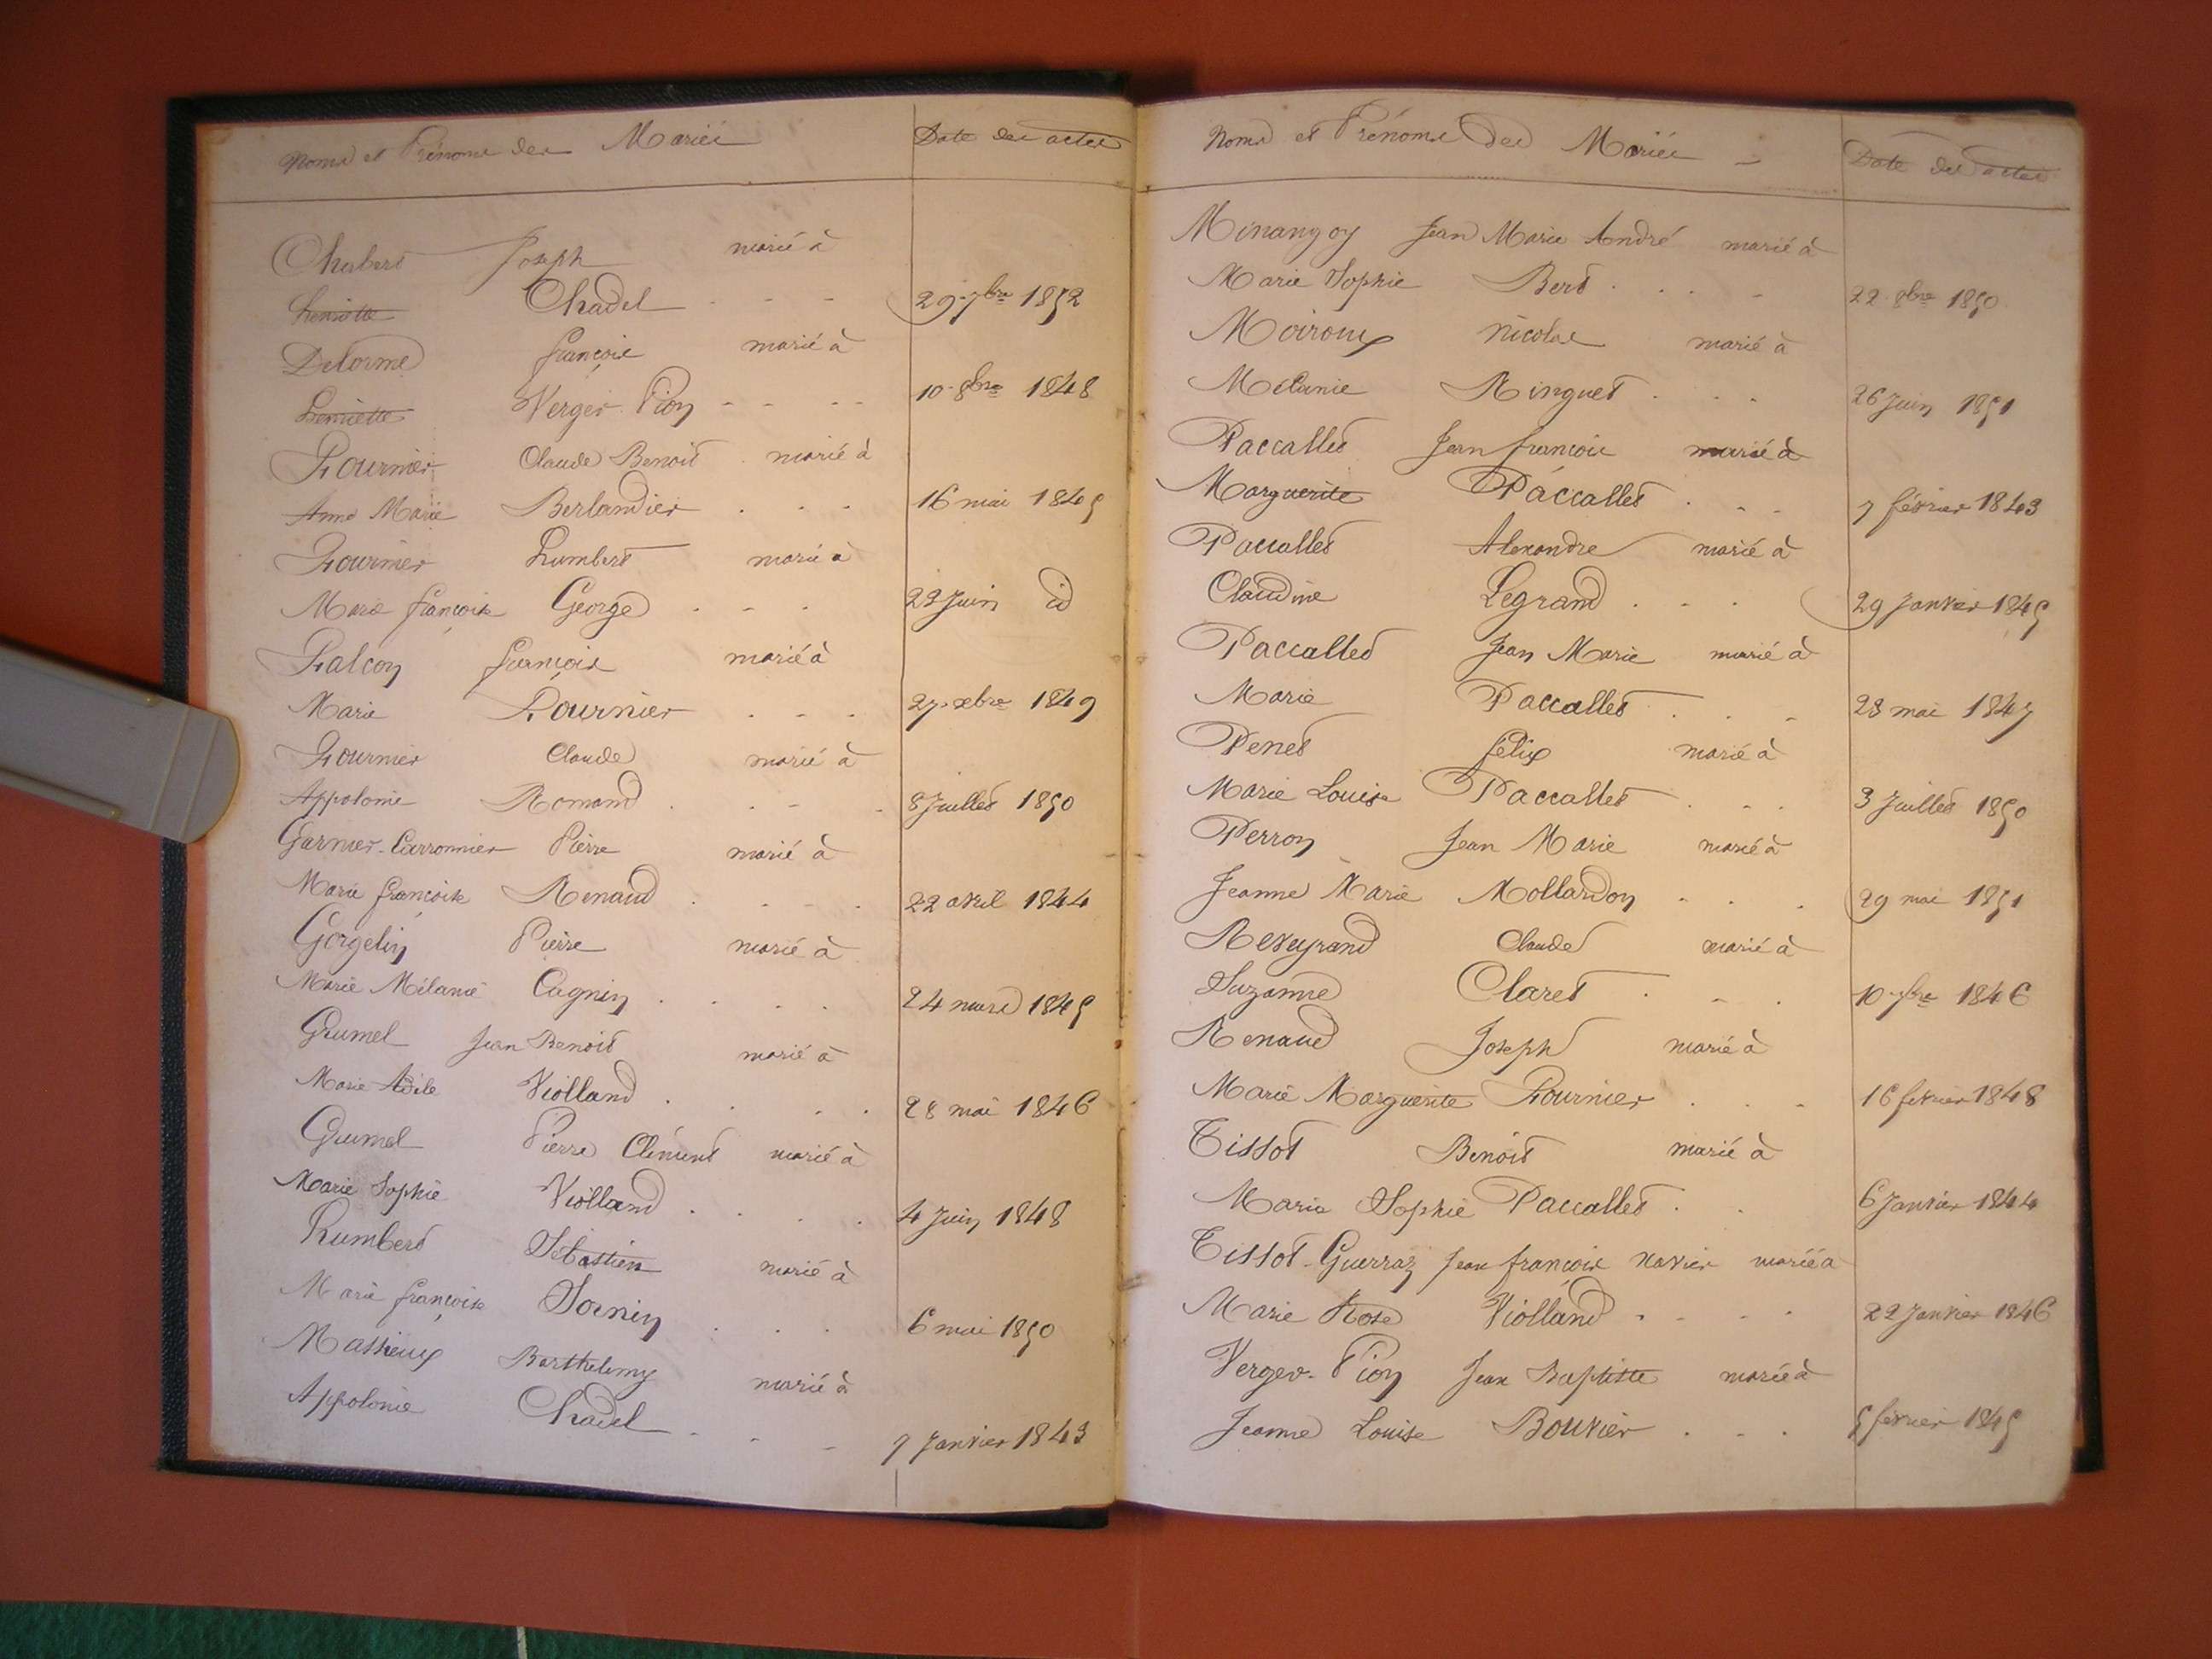 Noms et Prénoms des Mariés
Date des actes
Chabert Joseph marié à
henriette Chadel - - - 29 7bre 1852
Delorme françois marié à
henriette Verger-Pion - - - - 10 8bre 1848
Fournier Claude Benoit marié à
Anne Marie Berlandier . . . 16 mai 1845
Fournier humbert marié à
Marie françoise George . - . 23 Juin id
Falcoz françois marié à
Marie Fournier . - . 27 xbre 1849
Fournier Claude marié à
Appolonie Romand . . - . 8 Juillet 1850
Garnier-Carronnier Pierre marié à
Marie françoise Renaud . . - . 22 avril 1844
Gorgelin Pierre marié à
Marie Mélanie Cagnin . . . . 24 mars 1845
Grumel Jean Benoit marié à
Marie Adèle Violland . . . . 28 mai 1846
Grumel Pierre Clément marié à
Marie Sophie Violland . . . . 4 Juin 1848
humbert Sébastien marié à
Marie françoise Sornin . . . 6 mai 1850
Mathieux Barthelemy marié à
Appolonie Chadel - - - 7 Janvier 1843
Noms et Prénoms des Mariés -
Date des actes
Minangoy Jean Marie André marié à
Marie Sophie Bert . . . - 22 8bre 1850
Moiroux Nicolas marié à
Mélanie Ringuet . . . 26 Juin 1851
Paccallet Jean françois marié à
Marguerite Paccallet . . - 7 février 1843
Paccallet Alexandre marié à
Claudine Legrand . - . 29 Janvier 1845
Paccallet Jean Marie marié à
Marie Paccallet . . - 23 mai 1847
Penet félix marié à
Marie Louise Paccallet . . . 3 Juillet 1850
Perron Jean Marie marié à
Jeanne Marie Mollardon . . . 29 mai 1851
Reveyrand Claude marié à
Suzanne Claret . - . 10 7bre 1846
Renaud Joseph marié à
Marie Marguerite Fournier . . - 16 février 1848
Tissot Benoit marié à
Marie Sophie Paccallet . . 6 Janvier 1844
Tissot-Guerraz Jean françois xavier marié à
Marie Rose Violland . . . . 22 Janvier 1846
Verger-Pion Jean Baptiste marié à
Jeanne Louise Bouvier . . . 5 février 1845